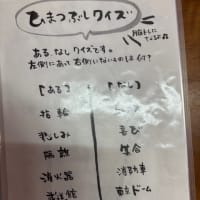 ひまつぶしクイズ
脳トレに
なるよ♫
ある、なしクイズです。
左側にあって右側にないものは何?
【ある】 【なし】
指輪
悲しみ 喜び
解散 集合
消火器 消防車
武道館 東京ドーム